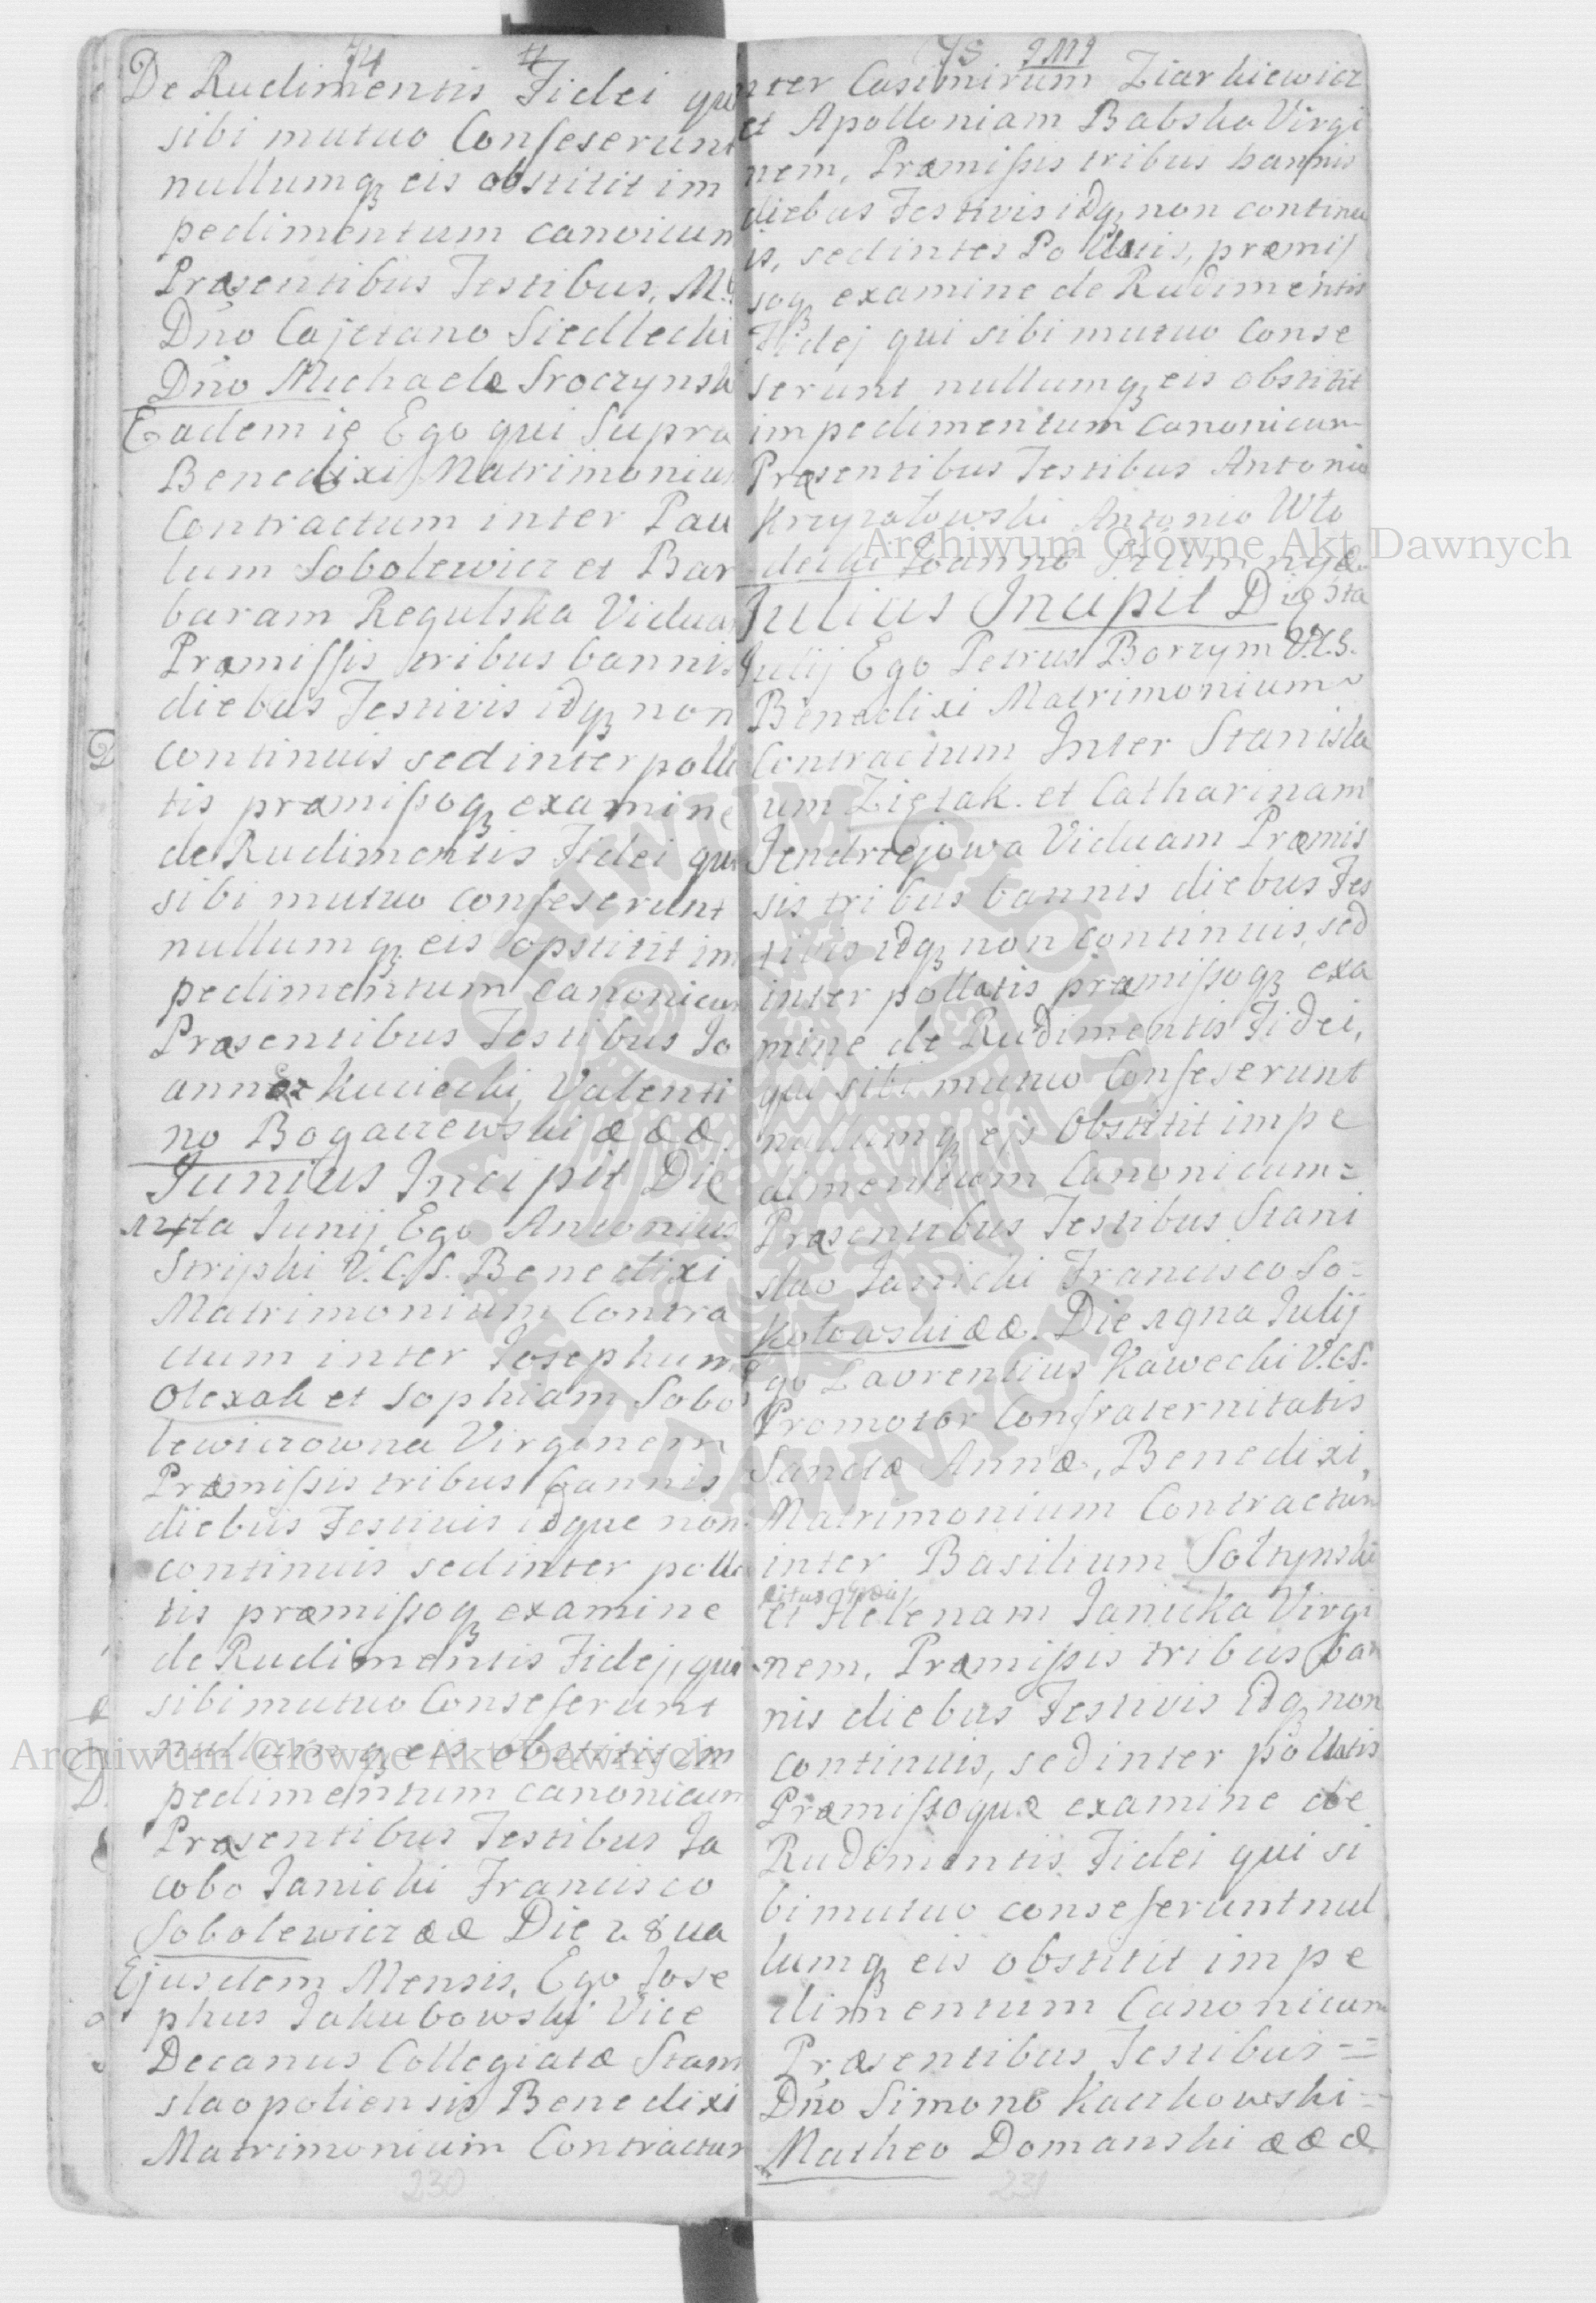 74
De Rudimentis Fidei qui
sibi mutuo Conseserunt
nullumq3 eis obstitit im
pedimentum canoicum
Præsentibus Testibus, M.
Dño Cajetano Siedlecki
Dño Michaele Sroczynski
Eadem ie Ego qui Supra
Benedixi Matrimonium
Contractum inter Pau
lum Sobolewicz et Bar
baram Regulska Viduam
Præmissis tribus bannis
diebus Festivis idq3 non
continuis sed inter polla
tis præmissoq3 examine
de Rudimentis Fidei qui
sibi mutuo conseserunt
nullumq3 eis opstitit im
pedimentum canonicum
Præsentibus Testibus Jo
anne Kuciecki, Valenti
no Bogaczewski æææ.
Junius Incipit Die
12ta Junij Ego Antonius
Stripki V.C.S. Benedixi
Matrimonium Contra
ctum inter Josephum
Olexak et Sophiam Sobo
lewiczowna Virginem
Præmissis tribus bannis
diebus Festiuis idque non
continuis sed inter polla
tis præmissoq3 examine
de Rudimentis Fidej, qui
sibi mutuo Conseserunt
nullumq3 eis obstitit im
pedimentum canonicum
Præsentibus Testibus Ja
cobo Janicki Francisco
Sobolewicz ææ Die 28ua
Ejusdem Mensis, Ego Jose
phus Jakubowski Vice
Decanus Collegiatæ Stani
slaopoliensis Benedixi
Matrimonium Contractum
230
75
inter Casimirum Ziarkiewicz
et Apolloniam Babska Virgi
nem, Præmissis tribus bannis
diebus Festivis idq3 non continu
is, sed inter Pollatis, præmis
soq3 examine de Rudimentis
Fidej qui sibi mutuo Conse
serunt nullumq3 eis obstitit
impedimentum canonicum
Præsentibus Testibus Antonio
Krzyzatowski Antonio Wło
decki Joanne
Julius Incipit Die 3ta
Julij Ego Petrus Borzym V.C.S.
Benedixi Matrimonium
Contractum Inter Stanisla
um Zietak. et Catharinam
Jendrzejowa Viduam Præmis
sis tribus bannis diebus Fes
tivis idq3 non continuis, sed
inter pollatis præmissoq3 exa
mine de Rudimentis Fidei,
qui sibi mutuo Conseserunt
nullumq3 ejs Obstitit impe
dimentum Canonicum=
Præsentibus Testibus Stani
slao Janicki Francisco So=
kołowski ææ. Die 19na Julij
Ego Laurentius Kawecki V.C.S.
Promotor Confraternitatis
Sanctæ Annæ, Benedixi,
Matrimonium Contractum
inter Basilium Sołtynski
et Helenam Janicka Virgi
nem, Præmissis tribus ban
nis diebus Festivis Idq3 non
continuis, sed inter pollatis
Præmissoquæ examine de
Rudimentis Fidei qui si
bi mutuo conseserunt nul
lumq3 eis obstitit impe
dimentum Canonicum
Præsentibus Testibus =
Dño Simone Kaczkowski =
Matheo Domanski æææ
231
Archiwum Główne Akt Dawnych
Archiwum Główne Akt Dawnych
ARCHIWUM GŁÓWNE AKT DAWNYCH